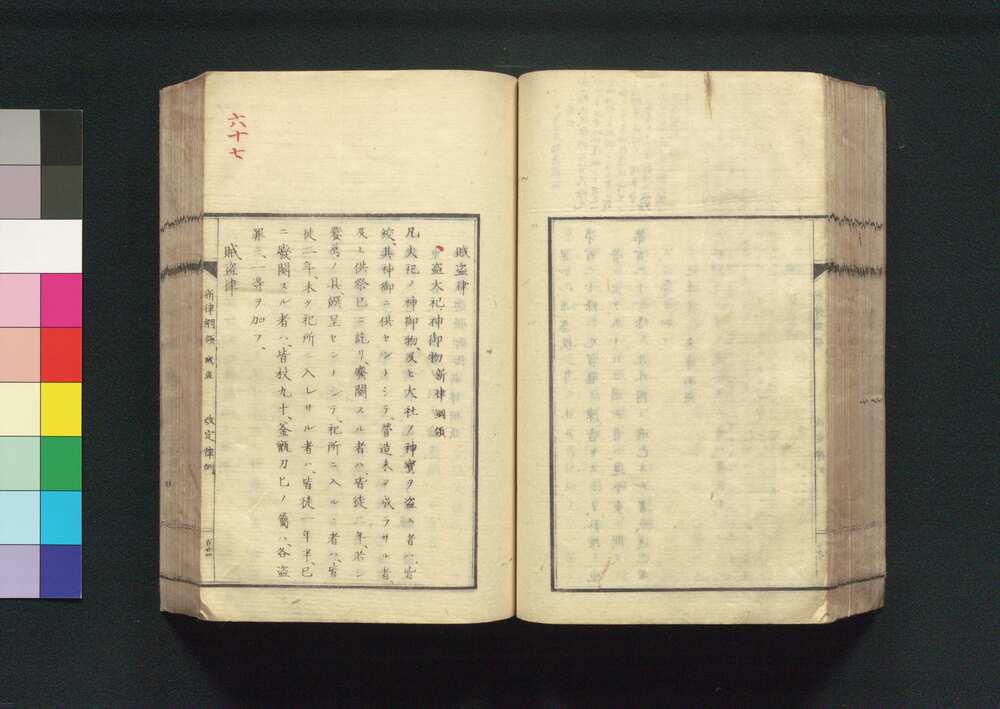 六十七
賊盗律
盗大祀神御物 新律綱領
凡大祀ノ神御物、及ヒ大社ノ神寶ヲ盗ム者ハ、皆
絞、其神御ニ供セントシテ、營造未タ成ラサル者、
及ヒ供祭已ニ訖リ、饗闋スル者ハ、皆徒二年、若シ
饗薦ノ具、饌呈セントシテ、祀所ニ入ルヽ者ハ、皆
徒二年、未タ祀所ニ入レサル者ハ、皆徒一年半、已
ニ饗闋スル者ハ、皆杖九十、釜甑刀匕ノ屬ハ、各盗
罪ニ一等ヲ加フ、
賊盗律
新律綱領 賊盗 改定律例